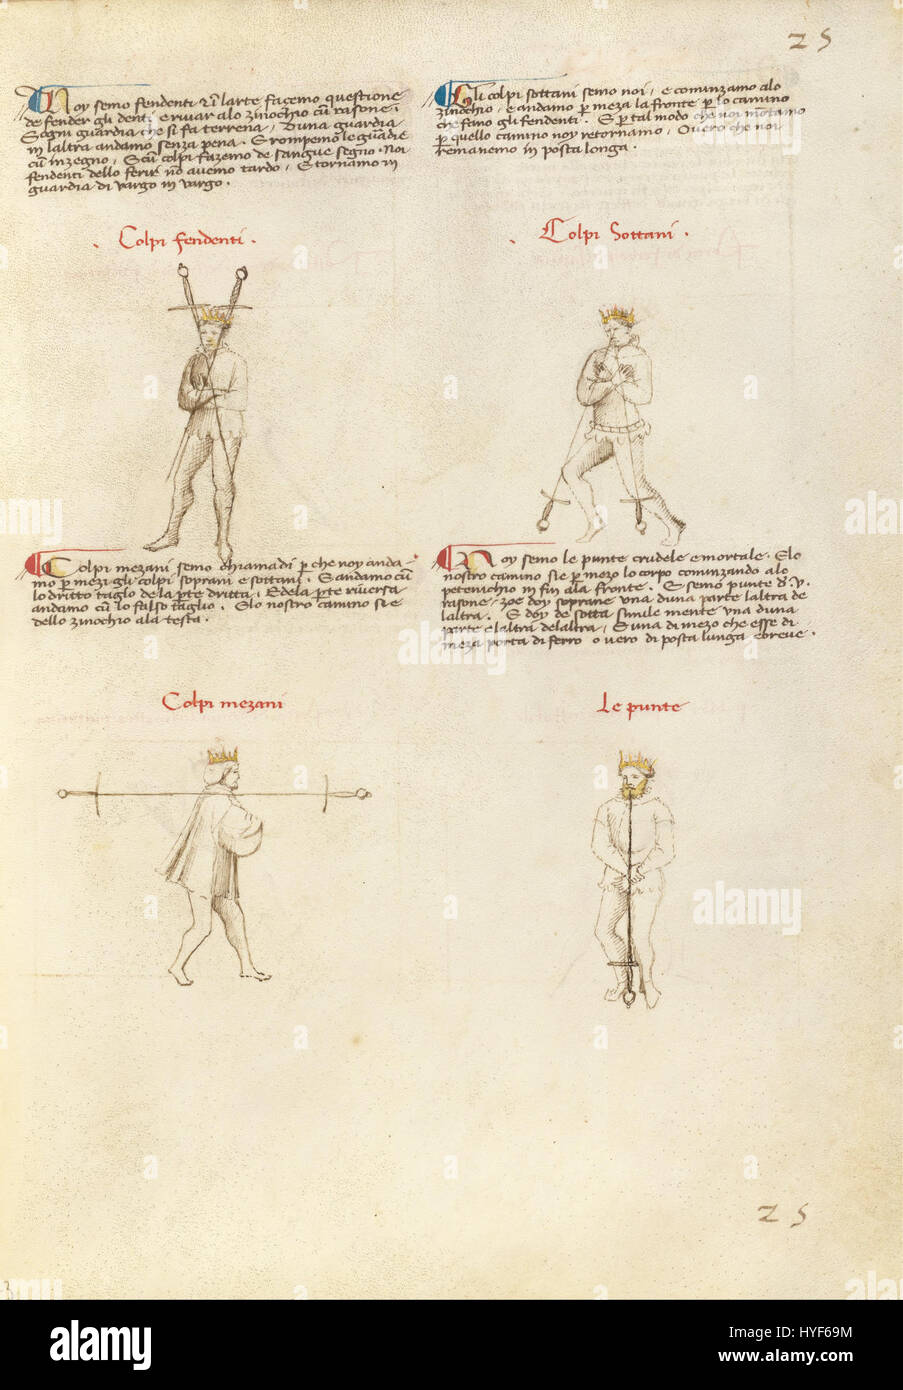 25
Noy semo fendenti e in larte facemo questione
de fender gli denti e rivar alo zinochio cum rasone.
E ogni guardia che si fa terrena, Duna guardia
in laltra andamo senza pena. E rompemo le guardie
cum inzegno, E cum colpi fazemo de sangue segno. Noi
fendenti dello ferir non avemo tardo, E tornamo in
guardia di vargo in vargo.
Colpi fendenti.
Gli colpi sottani semo noi, e cominzamo alo
zinochio, e andamo per meza la fronte per lo camino
che fano gli fendenti. E per tal modo che noi intramo
per quello camino noy retornamo, Overo che noi
remanemo in posta longa.
Colpi Sottani.
Colpi mezani semo chiamadi per che noy anda-
mo per mezi gli colpi soprani e sottani. E andamo cum
lo dritto taglo de la parte dritta, E de la parte riversa
andamo cum lo falso taglio. E lo nostro camino si e
dello zinochio ala testa.
Colpi mezani
Noy semo le punte crudele e mortale. E lo
nostro camino si e per mezo lo corpo cominzando alo
petenichio in fin ala fronte. E semo punte d. V.
rasone, zoe doy soprane una duna parte laltra de
laltra. E doy de sotta simile mente una duna
parte e laltra delaltra, E una di mezo che esse di
meza porta di ferro o vero di posta lunga e breve.
Le punte
25
alamy
Image ID: HYF69M
www.alamy.com